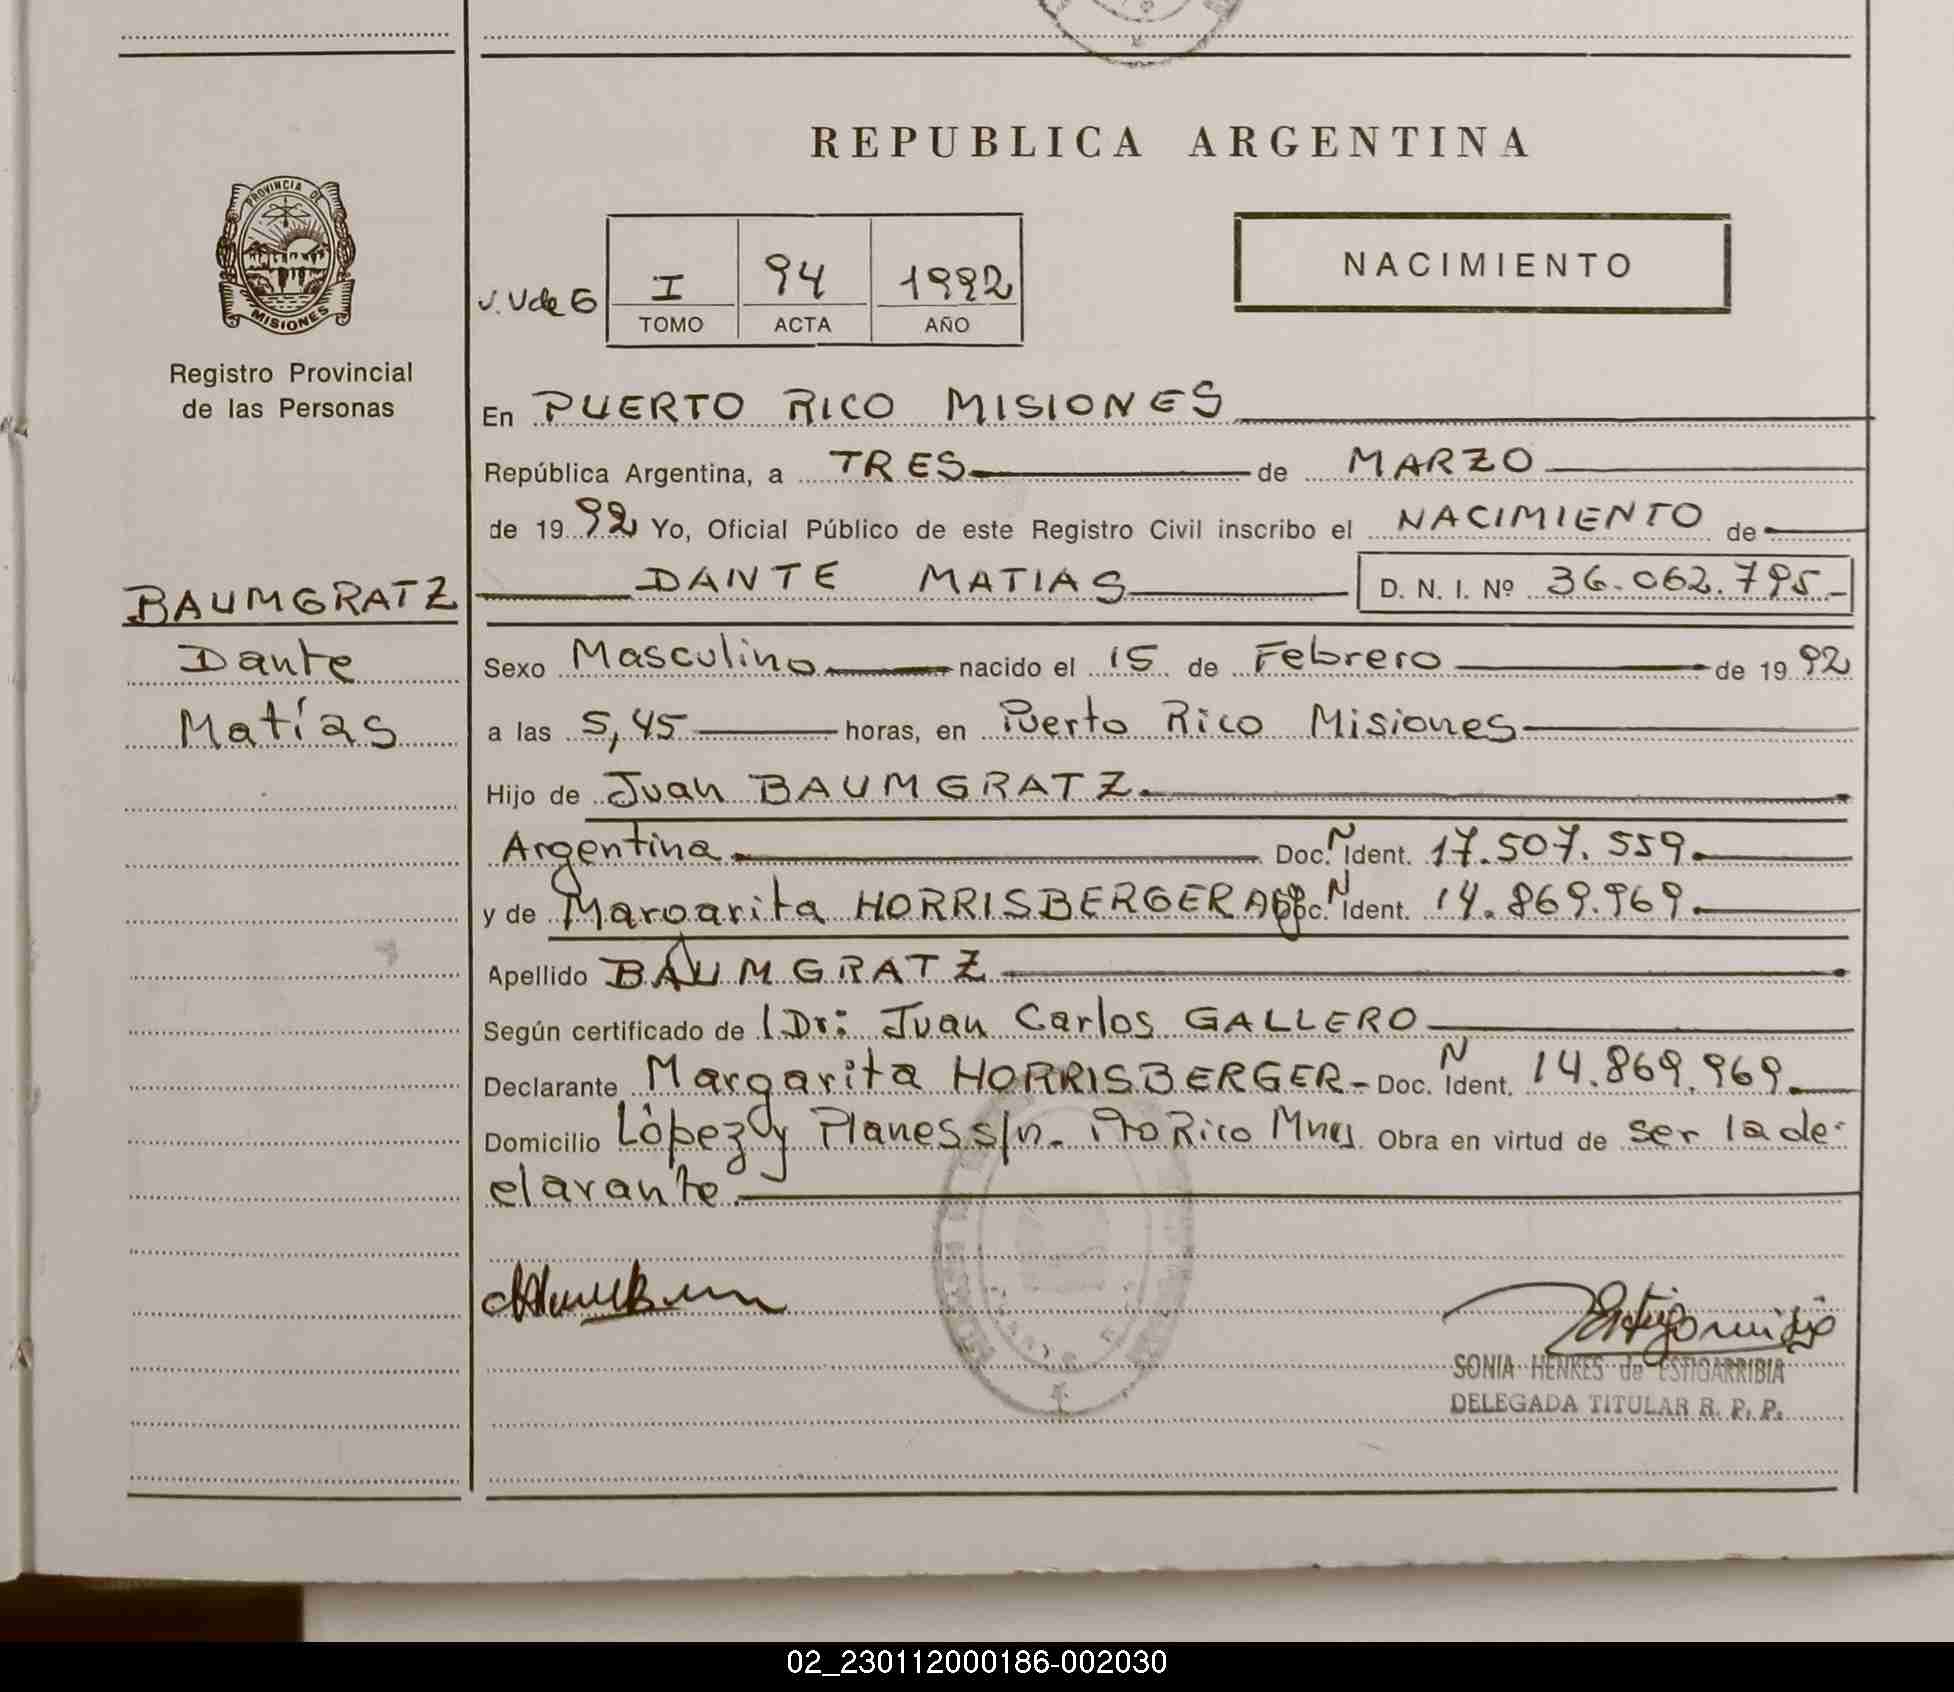 REPUBLICA ARGENTINA
PROVINCIA DE
MISIONES
Registro Provincial
de las Personas
NACIMIENTO
I 94 1992
TOMO ACTA AÑO
En PUERTO RICO MISIONES
República Argentina, a TRES de MARZO
de 19 92 Yo, Oficial Público de este Registro Civil inscribo el NACIMIENTO de
DANTE MATIAS D. N. I. Nº 36.062.795.-
BAUMGRATZ
Dante
Matías
Sexo Masculino nacido el 15 de Febrero de 19 92
a las 5,45 horas, en Puerto Rico Misiones
Hijo de Juan BAUMGRATZ.
Argentina. Doc. N Ident. 17.507.559.
y de Margarita HORRISBERGER Doc. N Ident. 14.869.969.
Apellido BAUMGRATZ
Según certificado de Dr: Juan Carlos GALLERO
Declarante Margarita HORRISBERGER - Doc. N Ident. 14.869.969.
Domicilio López y Planes s/n. Pto Rico Mnes Obra en virtud de ser la de-
clarante.
SONIA HENKES de ESTIGARRIBIA
DELEGADA TITULAR R. P. P.
02_230112000186-002030